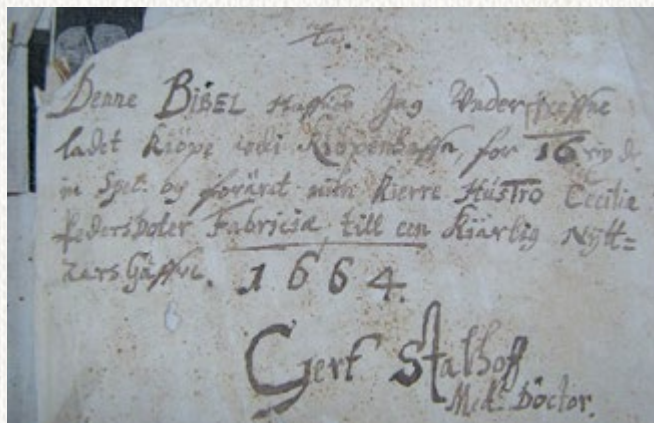 Denne BIBEL Haffuer Jag Vnderskreffne
ladet Kiöpe udi Kiöpenhaffn, for 16 rix d.
in Spet. og foräret min Kierre HUSTRO Cecilia
Pedersdoter Fabricia, till een Kiärlig Nytt=
Zars Gåffue. 1664.
Gert Stalhoff
Med. Doctor.